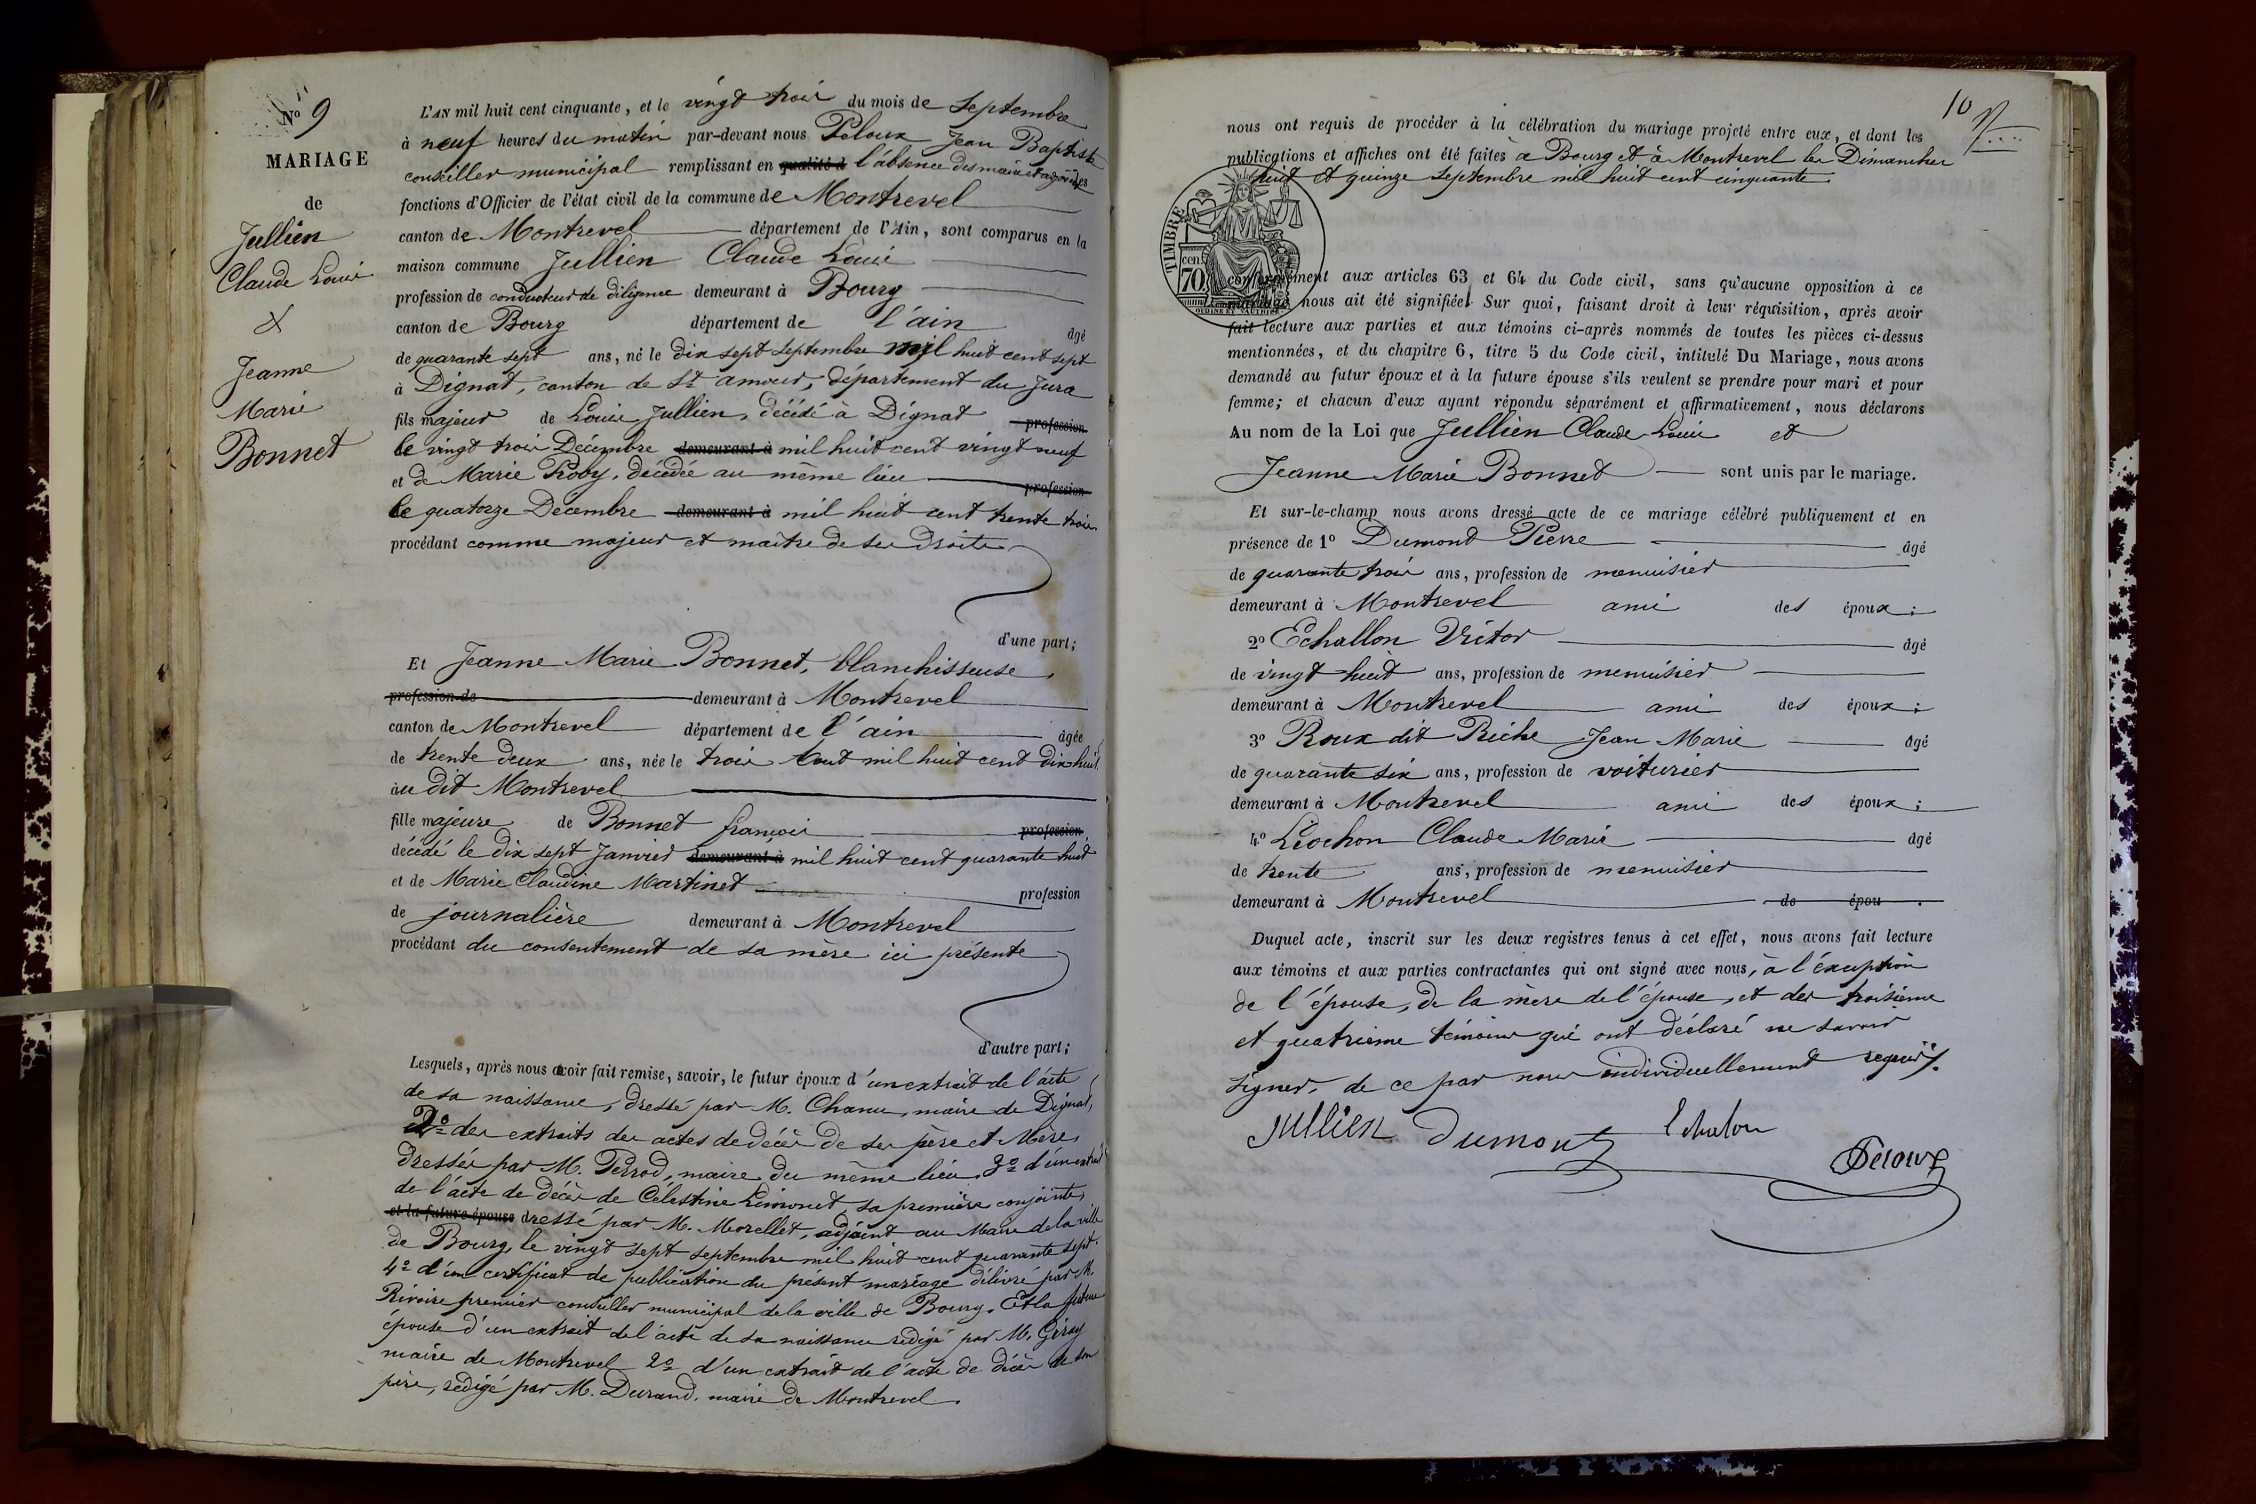 N° 9
MARIAGE
de
Jullien
Claude Louis
&
Jeanne
Marie
Bonnet
L'AN mil huit cent cinquante, et le vingt trois du mois de Septembre
à neuf heures du matin par-devant nous Peloux Jean Baptiste
conseiller municipal remplissant en qualité d l'absence des maire et adjoint les
fonctions d'Officier de l'état civil de la commune de Montrevel
canton de Montrevel département de l'Ain, sont comparus en la
maison commune Jullien Claude Louis
profession de conducteur de diligence demeurant à Bourg
canton de Bourg département de l'ain âgé
de quarante sept ans, né le dix sept septembre mil huit cent sept
à Dignat, canton de St amour, département du Jura
fils majeur de Louis Jullien, décédé à Dignat profession
le vingt trois Décembre demeurant à mil huit cent vingt neuf
et de Marie Proby, décédée au même lieu profession
le quatorze Décembre demeurant à mil huit cent trente trois
procédant comme majeur et maître de ses droits
d'une part;
Et Jeanne Marie Bonnet, blanchisseuse
profession de demeurant à Montrevel
canton de Montrevel département de l'ain âgée
de trente deux ans, née le trois aout mil huit cent dix huit
au dit Montrevel
fille majeure de Bonnet françois profession
décédé le dix sept Janvier demeurant à mil huit cent quarante huit
et de Marie Claudine Martinet profession
de journalière demeurant à Montrevel
procédant du consentement de sa mère ici présente
d'autre part;
Lesquels, après nous avoir fait remise, savoir, le futur époux d'un extrait de l'acte
de sa naissance, dressé par M. Chanu, maire de Dignat,
2° des extraits des actes de décès de ses père et Mère,
dressés par M. Perrod, maire du même lieu 3° d'un extrait
de l'acte de décès de Célestine Limonet, sa première conjointe,
et la future épouse dressé par M. Morellet, adjoint au Maire de la ville
de Bourg, le vingt sept septembre mil huit cent quarante sept.
4° d'un certificat de publication du présent mariage délivré par M.
Rivoire premier conseiller municipal de la ville de Bourg. Et la future
épouse d'un extrait de l'acte de sa naissance redigé par M. Giroy
maire de Montrevel 2° d'un extrait de l'acte de décès de son
père, redigé par M. Durand, maire de Montrevel.
10
nous ont requis de procéder à la célébration du mariage projeté entre eux, et dont les
publications et affiches ont été faites à Bourg et à Montrevel les Dimanches
huit et quinze septembre mil huit cent cinquante.
TIMBRE
cen.
70
OUDINE ET VAUTHIER
conformément aux articles 63 et 64 du Code civil, sans qu'aucune opposition à ce
mariage nous ait été signifiée. Sur quoi, faisant droit à leur réquisition, après avoir
fait lecture aux parties et aux témoins ci-après nommés de toutes les pièces ci-dessus
mentionnées, et du chapitre 6, titre 5 du Code civil, intitulé Du Mariage, nous avons
demandé au futur époux et à la future épouse s'ils veulent se prendre pour mari et pour
femme; et chacun d'eux ayant répondu séparément et affirmativement, nous déclarons
Au nom de la Loi que Jullien Claude Louis et
Jeanne Marie Bonnet sont unis par le mariage.
Et sur-le-champ nous avons dressé acte de ce mariage célébré publiquement et en
présence de 1° Dumond Pierre âgé
de quarante trois ans, profession de menuisier
demeurant à Montrevel ami des époux;
2° Echallon Victor âgé
de vingt huit ans, profession de menuisier
demeurant à Montrevel ami des époux;
3° Roux dit Riche Jean Marie âgé
de quarante six ans, profession de voiturier
demeurant à Montrevel ami des époux;
4° Léochon Claude Marie âgé
de trente ans, profession de menuisier
demeurant à Montrevel de épou .
Duquel acte, inscrit sur les deux registres tenus à cet effet, nous avons fait lecture
aux témoins et aux parties contractantes qui ont signé avec nous, à l'éxception
de l'épouse, de la mère de l'épouse, et des troisième
et quatrieme témoins qui ont déclaré ne savoir
signer, de ce par nous individuellement requis.
Jullien Dumont Echalon
Peloux